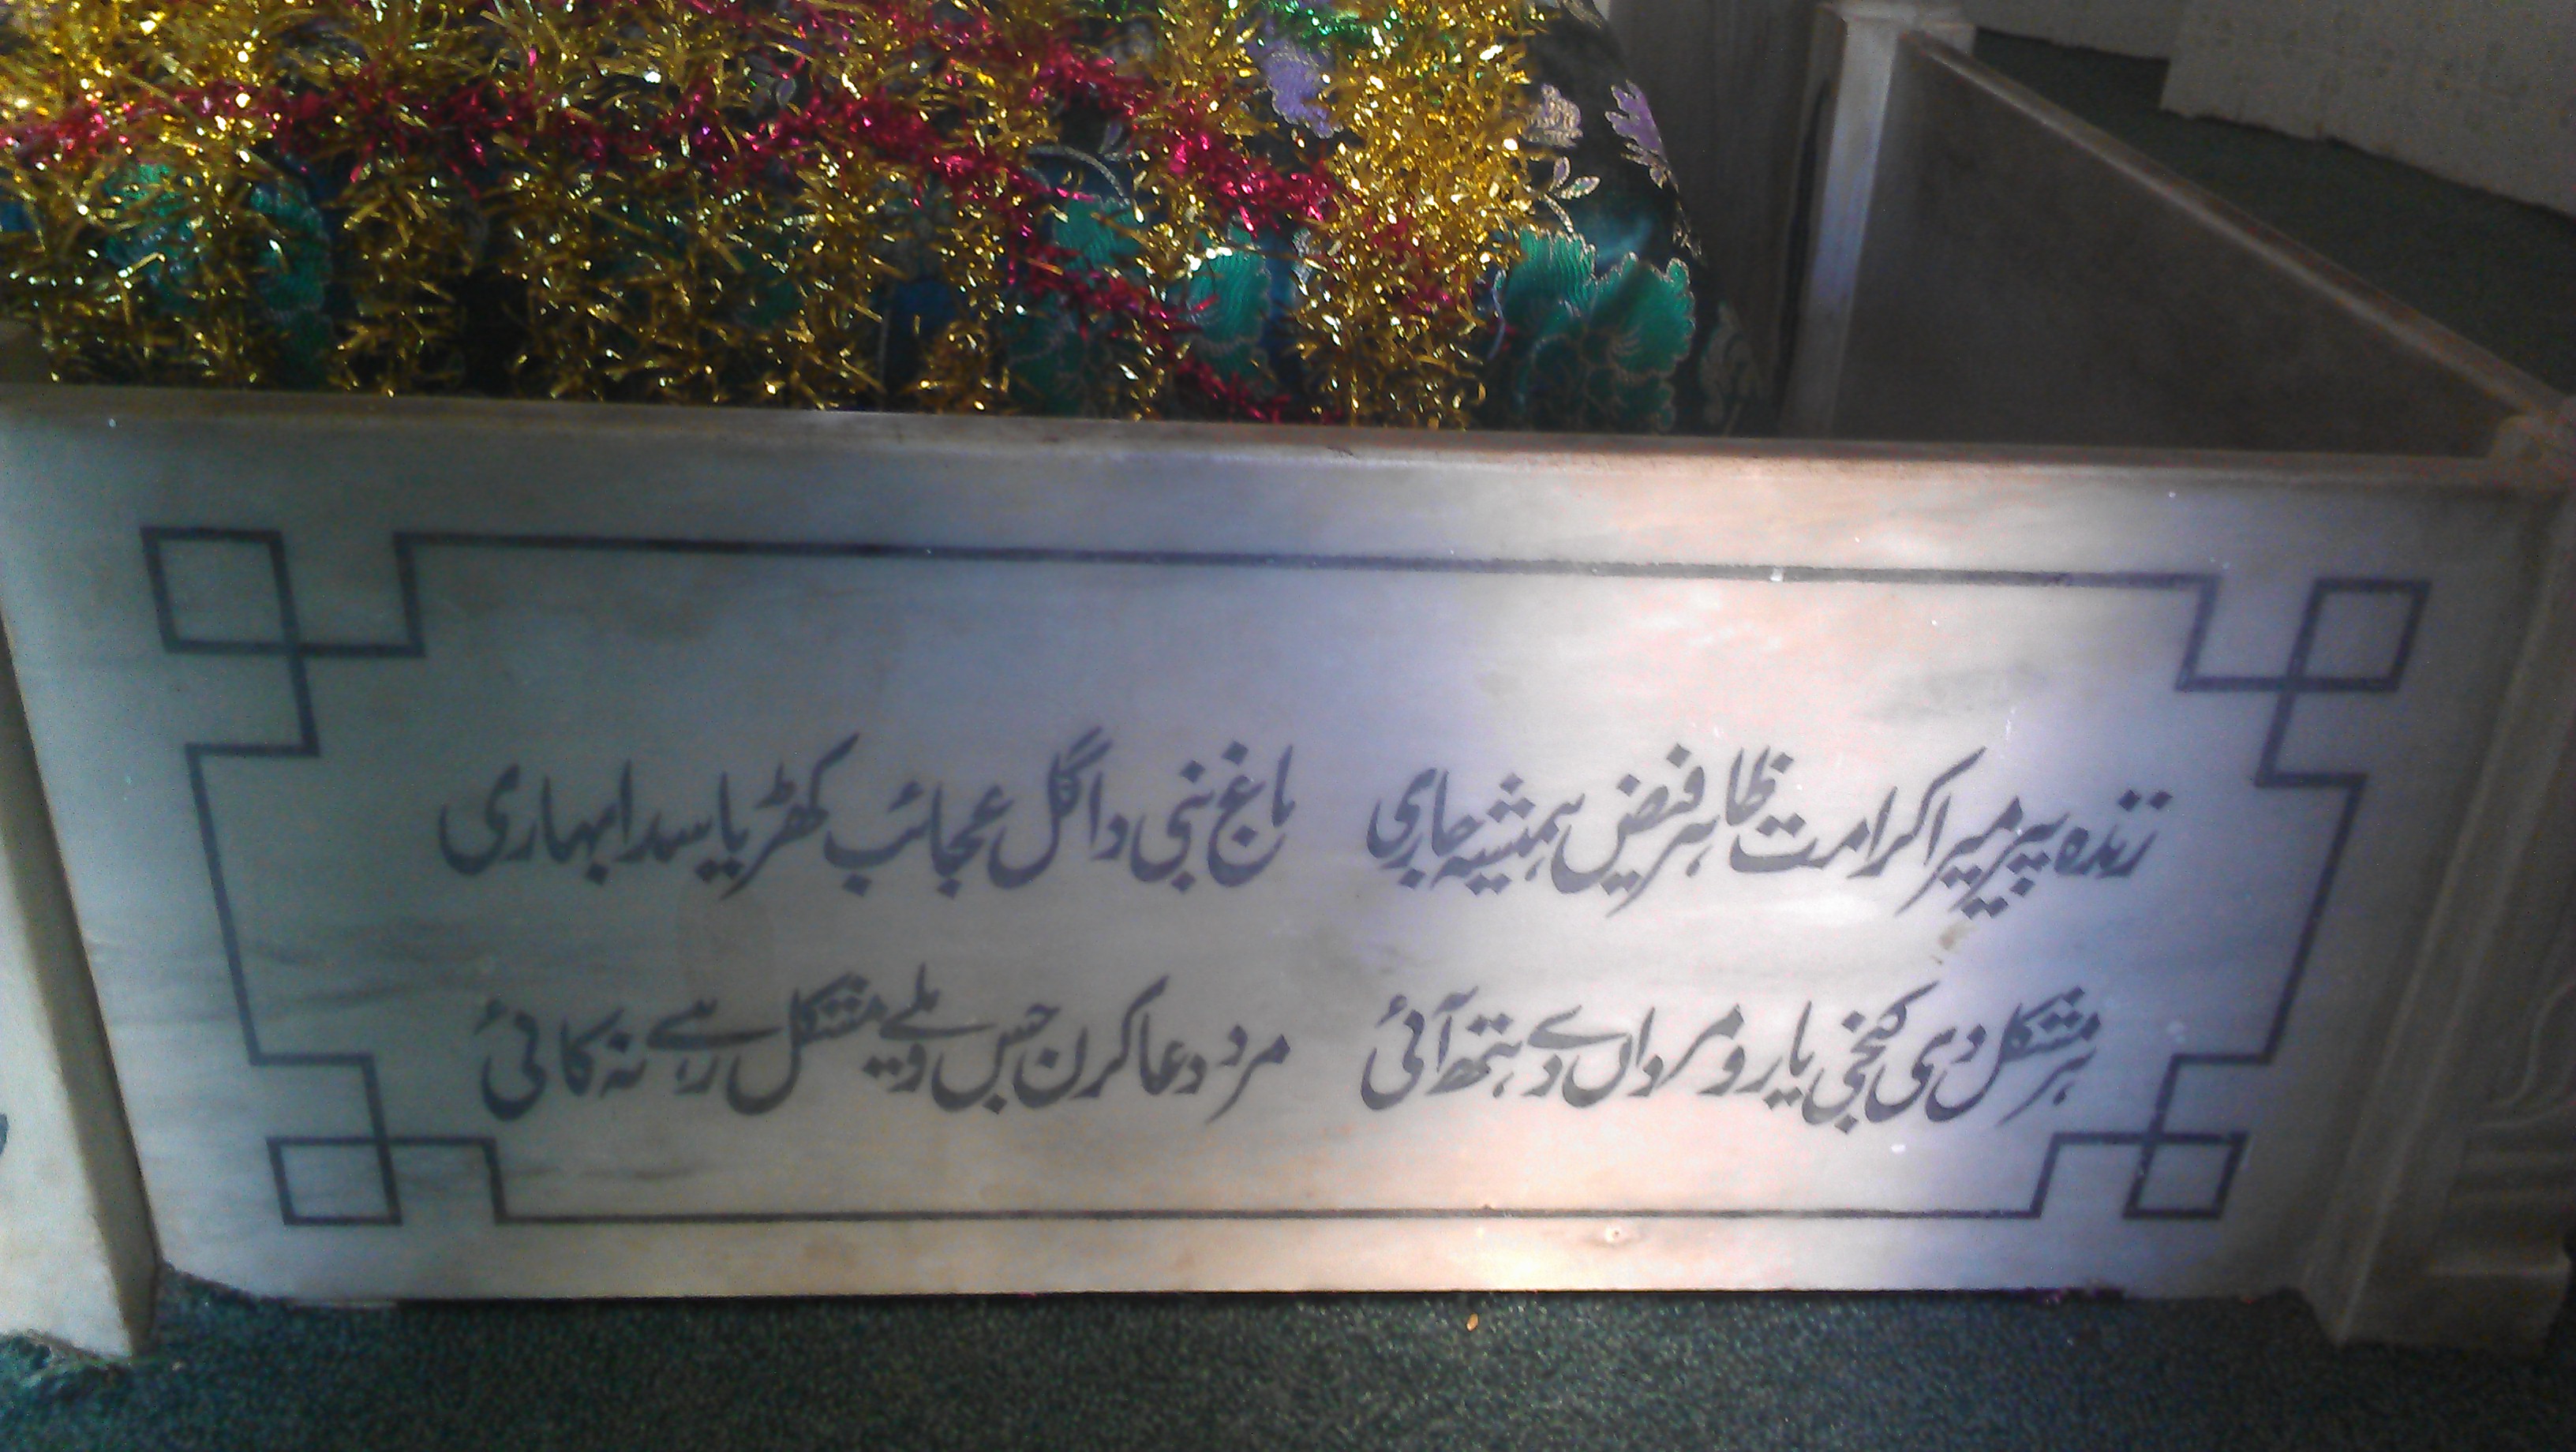 زندہ پیر میرا کرامت ظاہر فیض ہمیشہ جاری باغ نبی دا گل عجائب کھڑیا سدا بہاری
ہر مشکل دی کنجی یارو مرداں دے ہتھ آئی مرد دعا کرن جس ویلے مشکل رہے نہ کائی